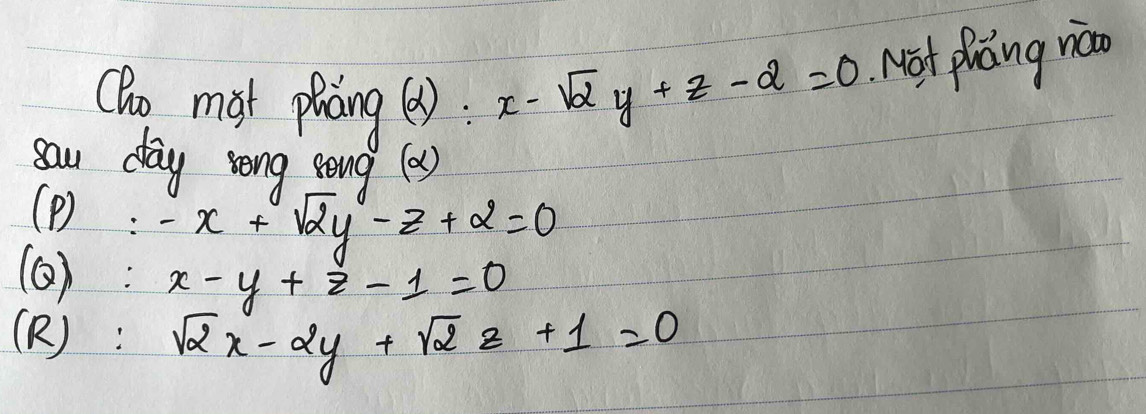 Cho mặt phẳng (α) : x - √2 y + z - 2 = 0. Mặt phẳng nào
sau đây song song (α)
(P) : - x + √2y - z + 2 = 0
(Q) : x - y + z - 1 = 0
(R) : √2 x - 2y + √2 z + 1 = 0